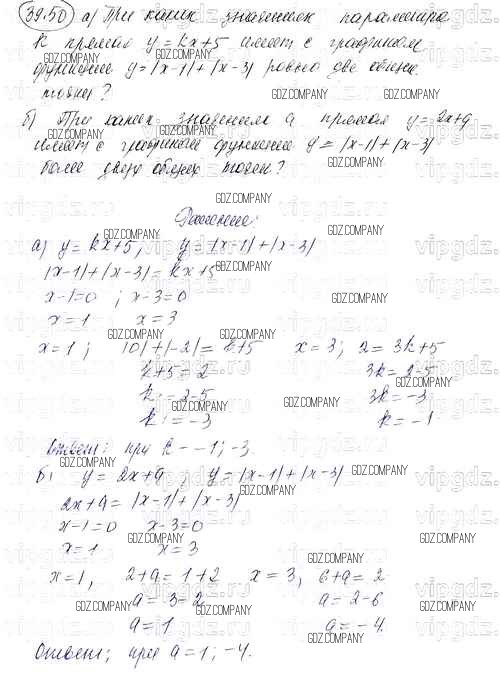 39.50 а) При каких значениях параметра
k прямая y = kx+5 имеет с графиком
функции y = |x-1| + |x-3| ровно две общие
точки?
б) При каких значениях a прямая y = 2x+a
имеет с графиком функции y = |x-1| + |x-3|
более двух общих точек?
Решение:
а) y = kx+5, y = |x-1| + |x-3|
|x-1| + |x-3| = kx+5
x-1=0 ; x-3=0
x=1 x=3
x=1; |0| + |-2| = k+5 x=3; 2 = 3k+5
k+5=2 3k = 2-5
k = 2-5 3k = -3
k = -3 k = -1
Ответ: при k = -1; -3.
б) y = 2x+a, y = |x-1| + |x-3|
2x+a = |x-1| + |x-3|
x-1=0 x-3=0
x=1 x=3
x=1, 2+a = 1+2 x=3, 6+a = 2
a = 3-2 a = 2-6
a = 1 a = -4.
Ответ; при a = 1; -4.
GDZ.COMPANY
vipgdz.ru